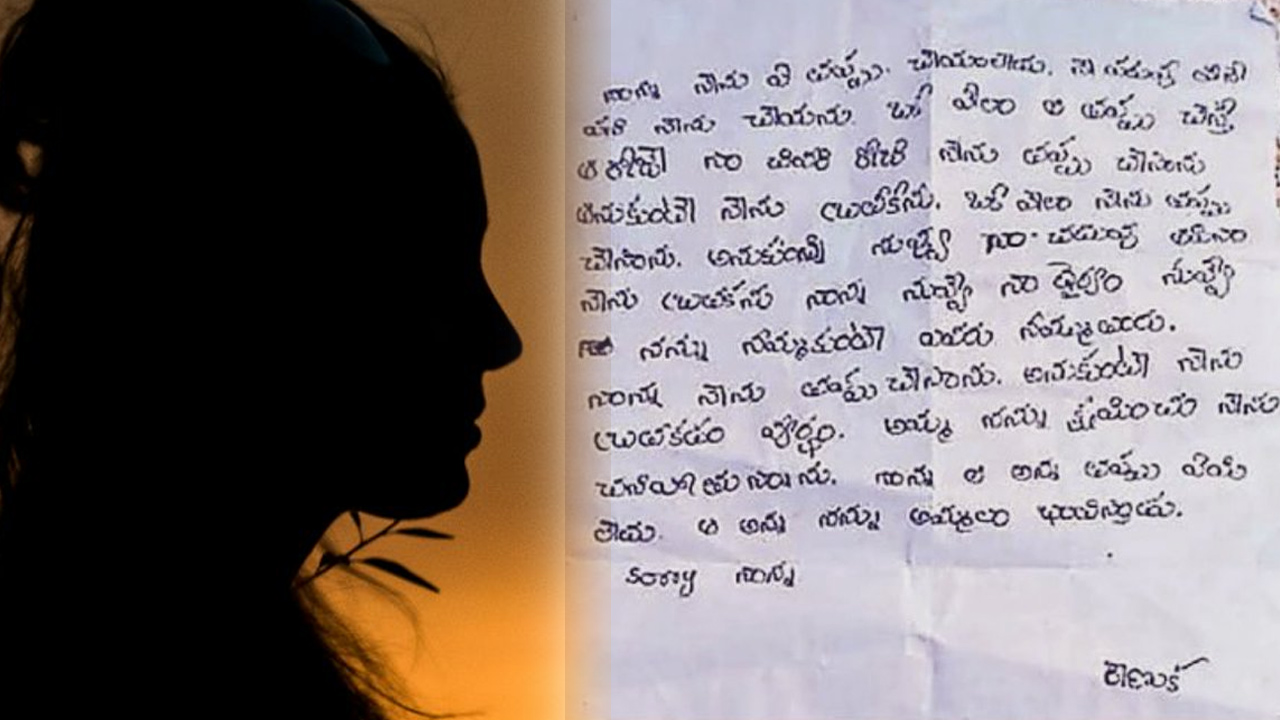 నాన్న నేను ఏ తప్పు. చేయలేదు. నీ పరువు తీసే
పని నేను చేయను. ఒకే వేల ఆ తప్పు చేస్తే
ఆ రోజే నా చివరి రోజు నేను తప్పు చేసాను
అనుకుంటే నేను బ్రతకను. ఒకే వేల నేను తప్పు
చేసాను. అనుకుంటున్న నువ్వే నా చదువు
నేను బ్రతకను నాన్న నువ్వే నా ధైర్యం నువ్వే
నన్ను నమ్మకుంటే ఎవరు నమ్మతారు.
నాన్న నేను తప్పు చేసాను. అనుకుంటే నేను
బ్రతకడం వ్యర్థం. అమ్మ నన్ను క్షమించు నేను
చనిపోతున్నాను. నాన్న ఆ అన్న తప్పు ఏమి
లేదు. ఆ అన్న నన్ను అమ్మలా భావిస్తాడు.
sorry నాన్న
రేణుక